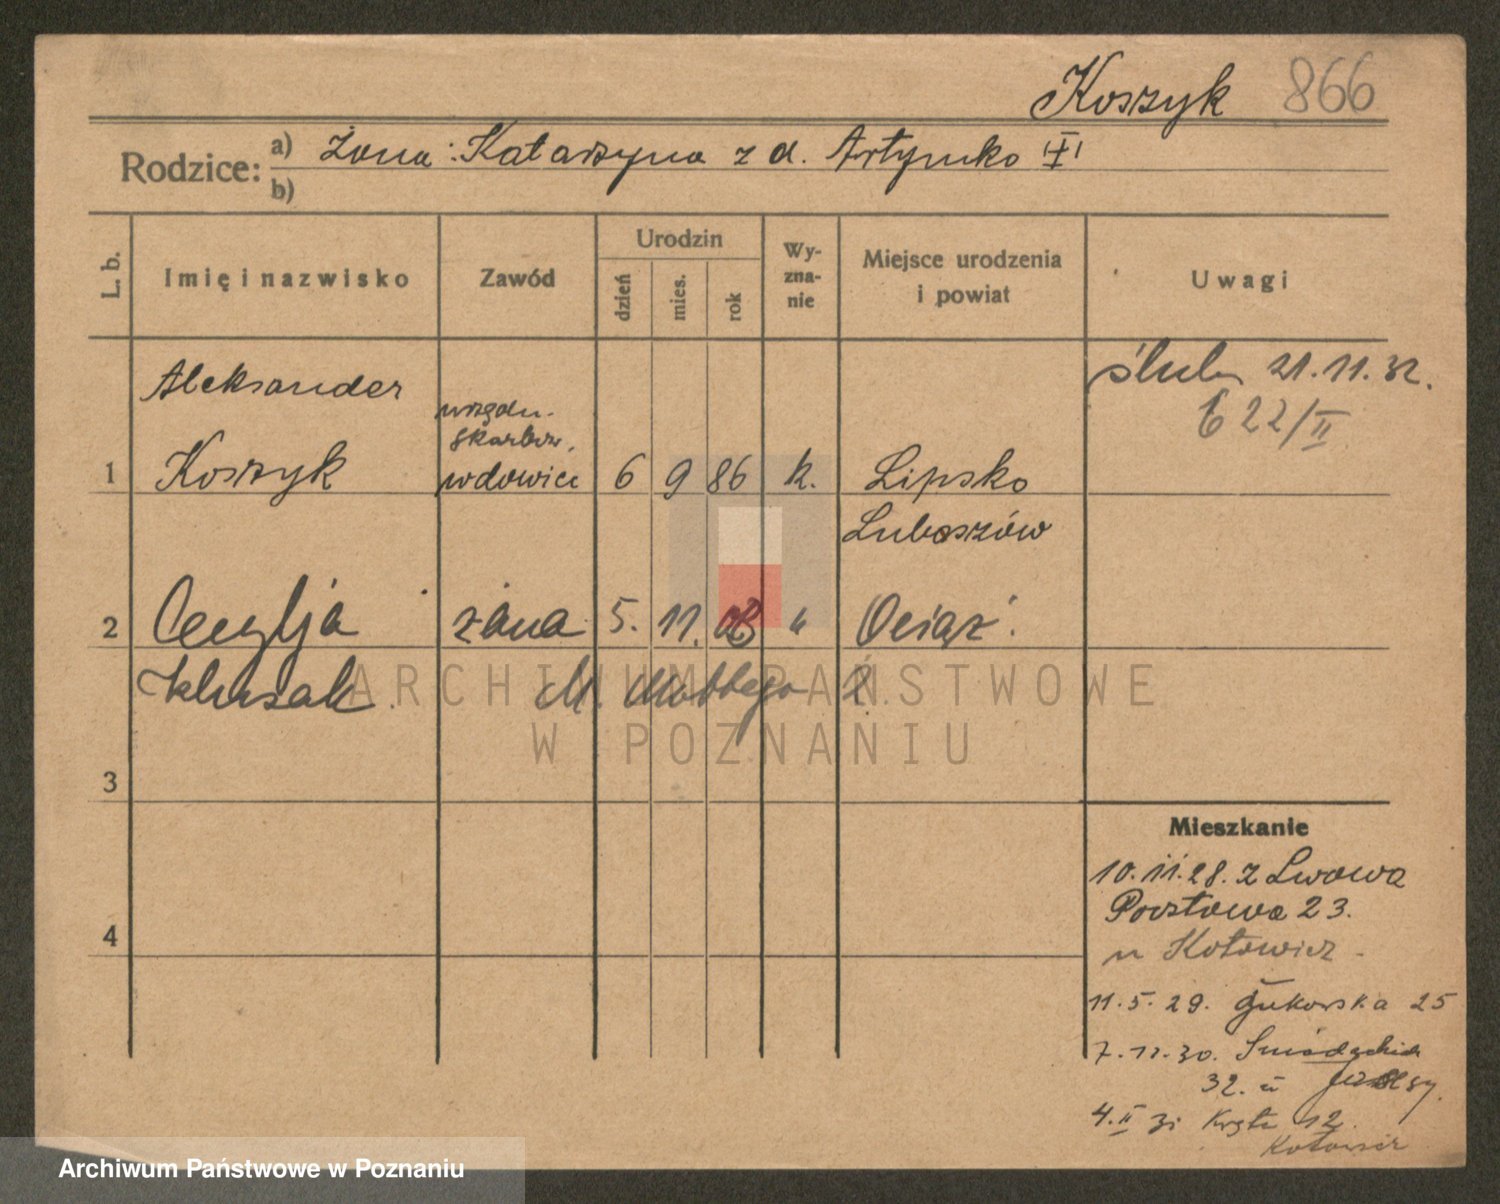 Koszyk 866
Rodzice: a) Żona: Katarzyna z d. Artymko I
b)
L. b. Imię i nazwisko Zawód Urodzin dzień mies. rok Wy-zna-nie Miejsce urodzenia i powiat Uwagi
Aleksander ślub 21.11.32.
622/II
skarbow.
1 Koszyk wdowiec 6 9 86 k. Lipsko
Lubaszów
2 Cecylja żona 5. 11. 03 " Ociąż.
Klusak. M. 2.
ARCHIWUM PAŃSTWOWE
W POZNANIU
3
4
Mieszkanie
10.11.28. z Lwowa
Pocztowa 23.
u Kotowicz
11.5.29. 25
7.11.30. Śniadeckich
32. u
4.II 31 Kręta 12
Kotowicz
Archiwum Państwowe w Poznaniu